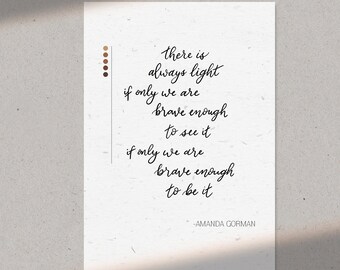 there is
always light
if only we are
brave enough
to see it
if only we are
brave enough
to be it
-AMANDA GORMAN